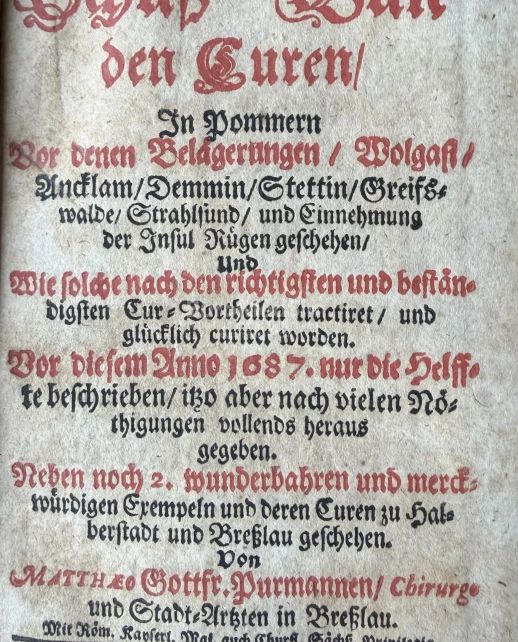 den Curen/
In Pommern
Vor denen Belägerungen / Wolgast /
Ancklam/Demmin/Stettin/Greifs-
walde/ Strahlsund/ und Einnehmung
der Insul Rügen geschehen/
Und
Wie solche nach den richtigsten und bestän-
digsten Cur-Vortheilen tractiret / und
glücklich curiret worden.
Vor diesem Anno 1687. nur die Helff-
te beschrieben/ itzo aber nach vielen Nö-
thigungen vollends heraus
gegeben.
Neben noch 2. wunderbahren und merck-
würdigen Exempeln und deren Curen zu Hal-
berstadt und Breßlau geschehen.
Von
MATTHÆO Gottfr. Purmannen/ Chirurgo
und Stadt-Artzten in Breßlau.
Mit Röm. Kayserl. Maj. auch Churfl. Sächß.